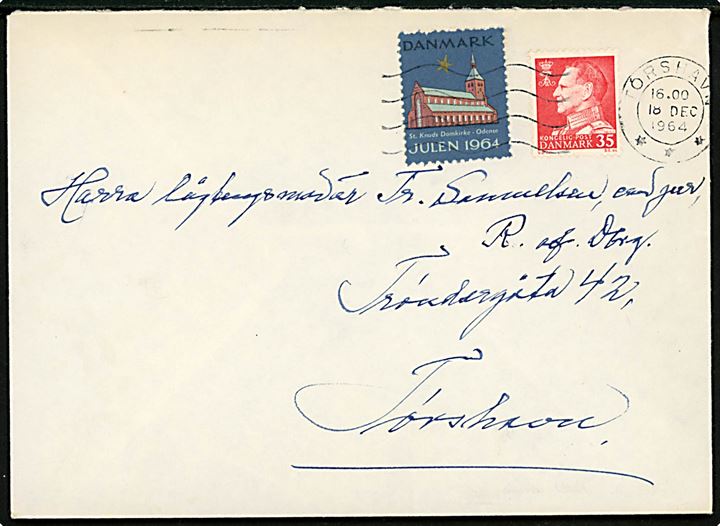 DANMARK
St. Knuds Domkirke - Odense
JULEN 1964
KONGELIG POST
DANMARK 35
TÓRSHAVN
16.00
18 DEC
1964
Harra løgtingsmaður Tr. Samuelsen, cand jur,
R. af. Dbrg.
Tróndargøta 42,
Tórshavn